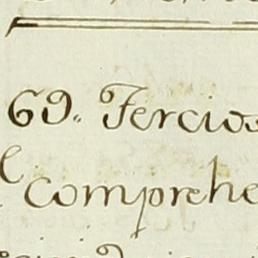 69. Tercios
comprehe